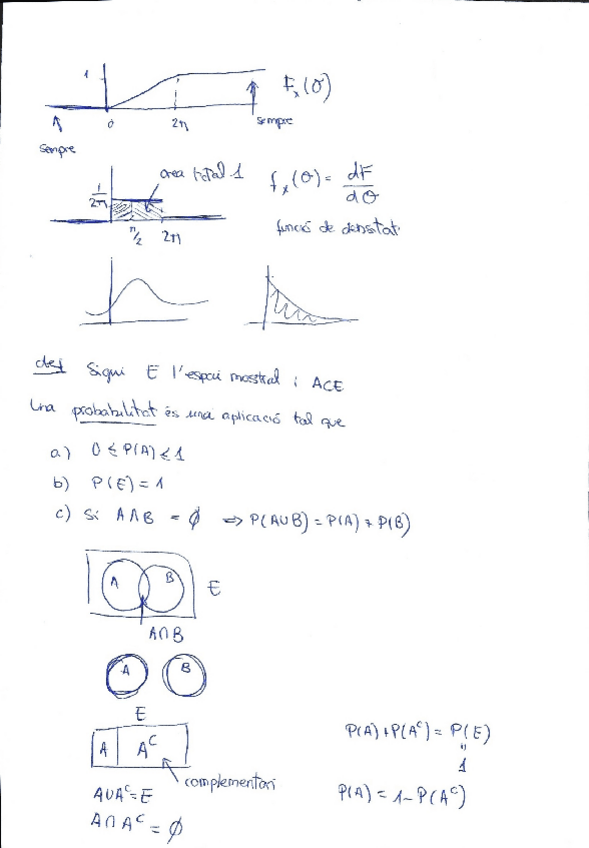 1
F_x(θ)
0
2π
sempre
sempre
area total 1
f_x(θ) = dF/dθ
1/2π
π/2
2π
funció de densitat
def Sigui E l'espai mostral i A⊂E
Una probabilitat és una aplicació tal que
a) 0 ≤ P(A) ≤ 1
b) P(E) = 1
c) Si A∩B = ∅ ⇒ P(A∪B) = P(A) + P(B)
A
B
E
A∩B
A
B
E
A
A^c
P(A) + P(A^c) = P(E)
"
1
complementari
A∪A^c = E
P(A) = 1 - P(A^c)
A∩A^c = ∅